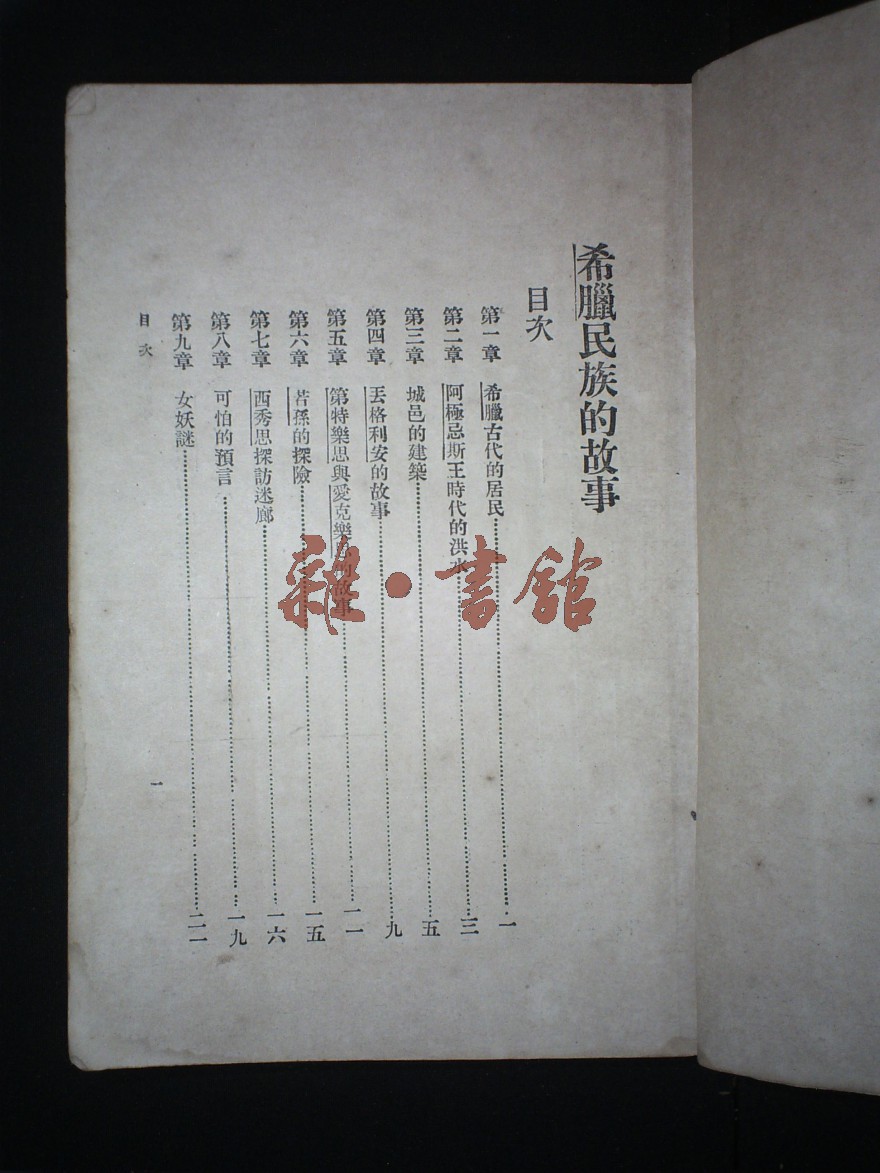 希臘民族的故事
目次
第一章 希臘古代的居民……一
第二章 阿極忌斯王時代的洪水……三
第三章 城邑的建築……五
第四章 丟格利安的故事……九
第五章 第特樂思與愛克樂 故事……一一
第六章 苦孫的探險……一五
第七章 西秀思探訪迷廊……一六
第八章 可怕的預言……一九
第九章 女妖謎……二一
目次
一
雜·書館